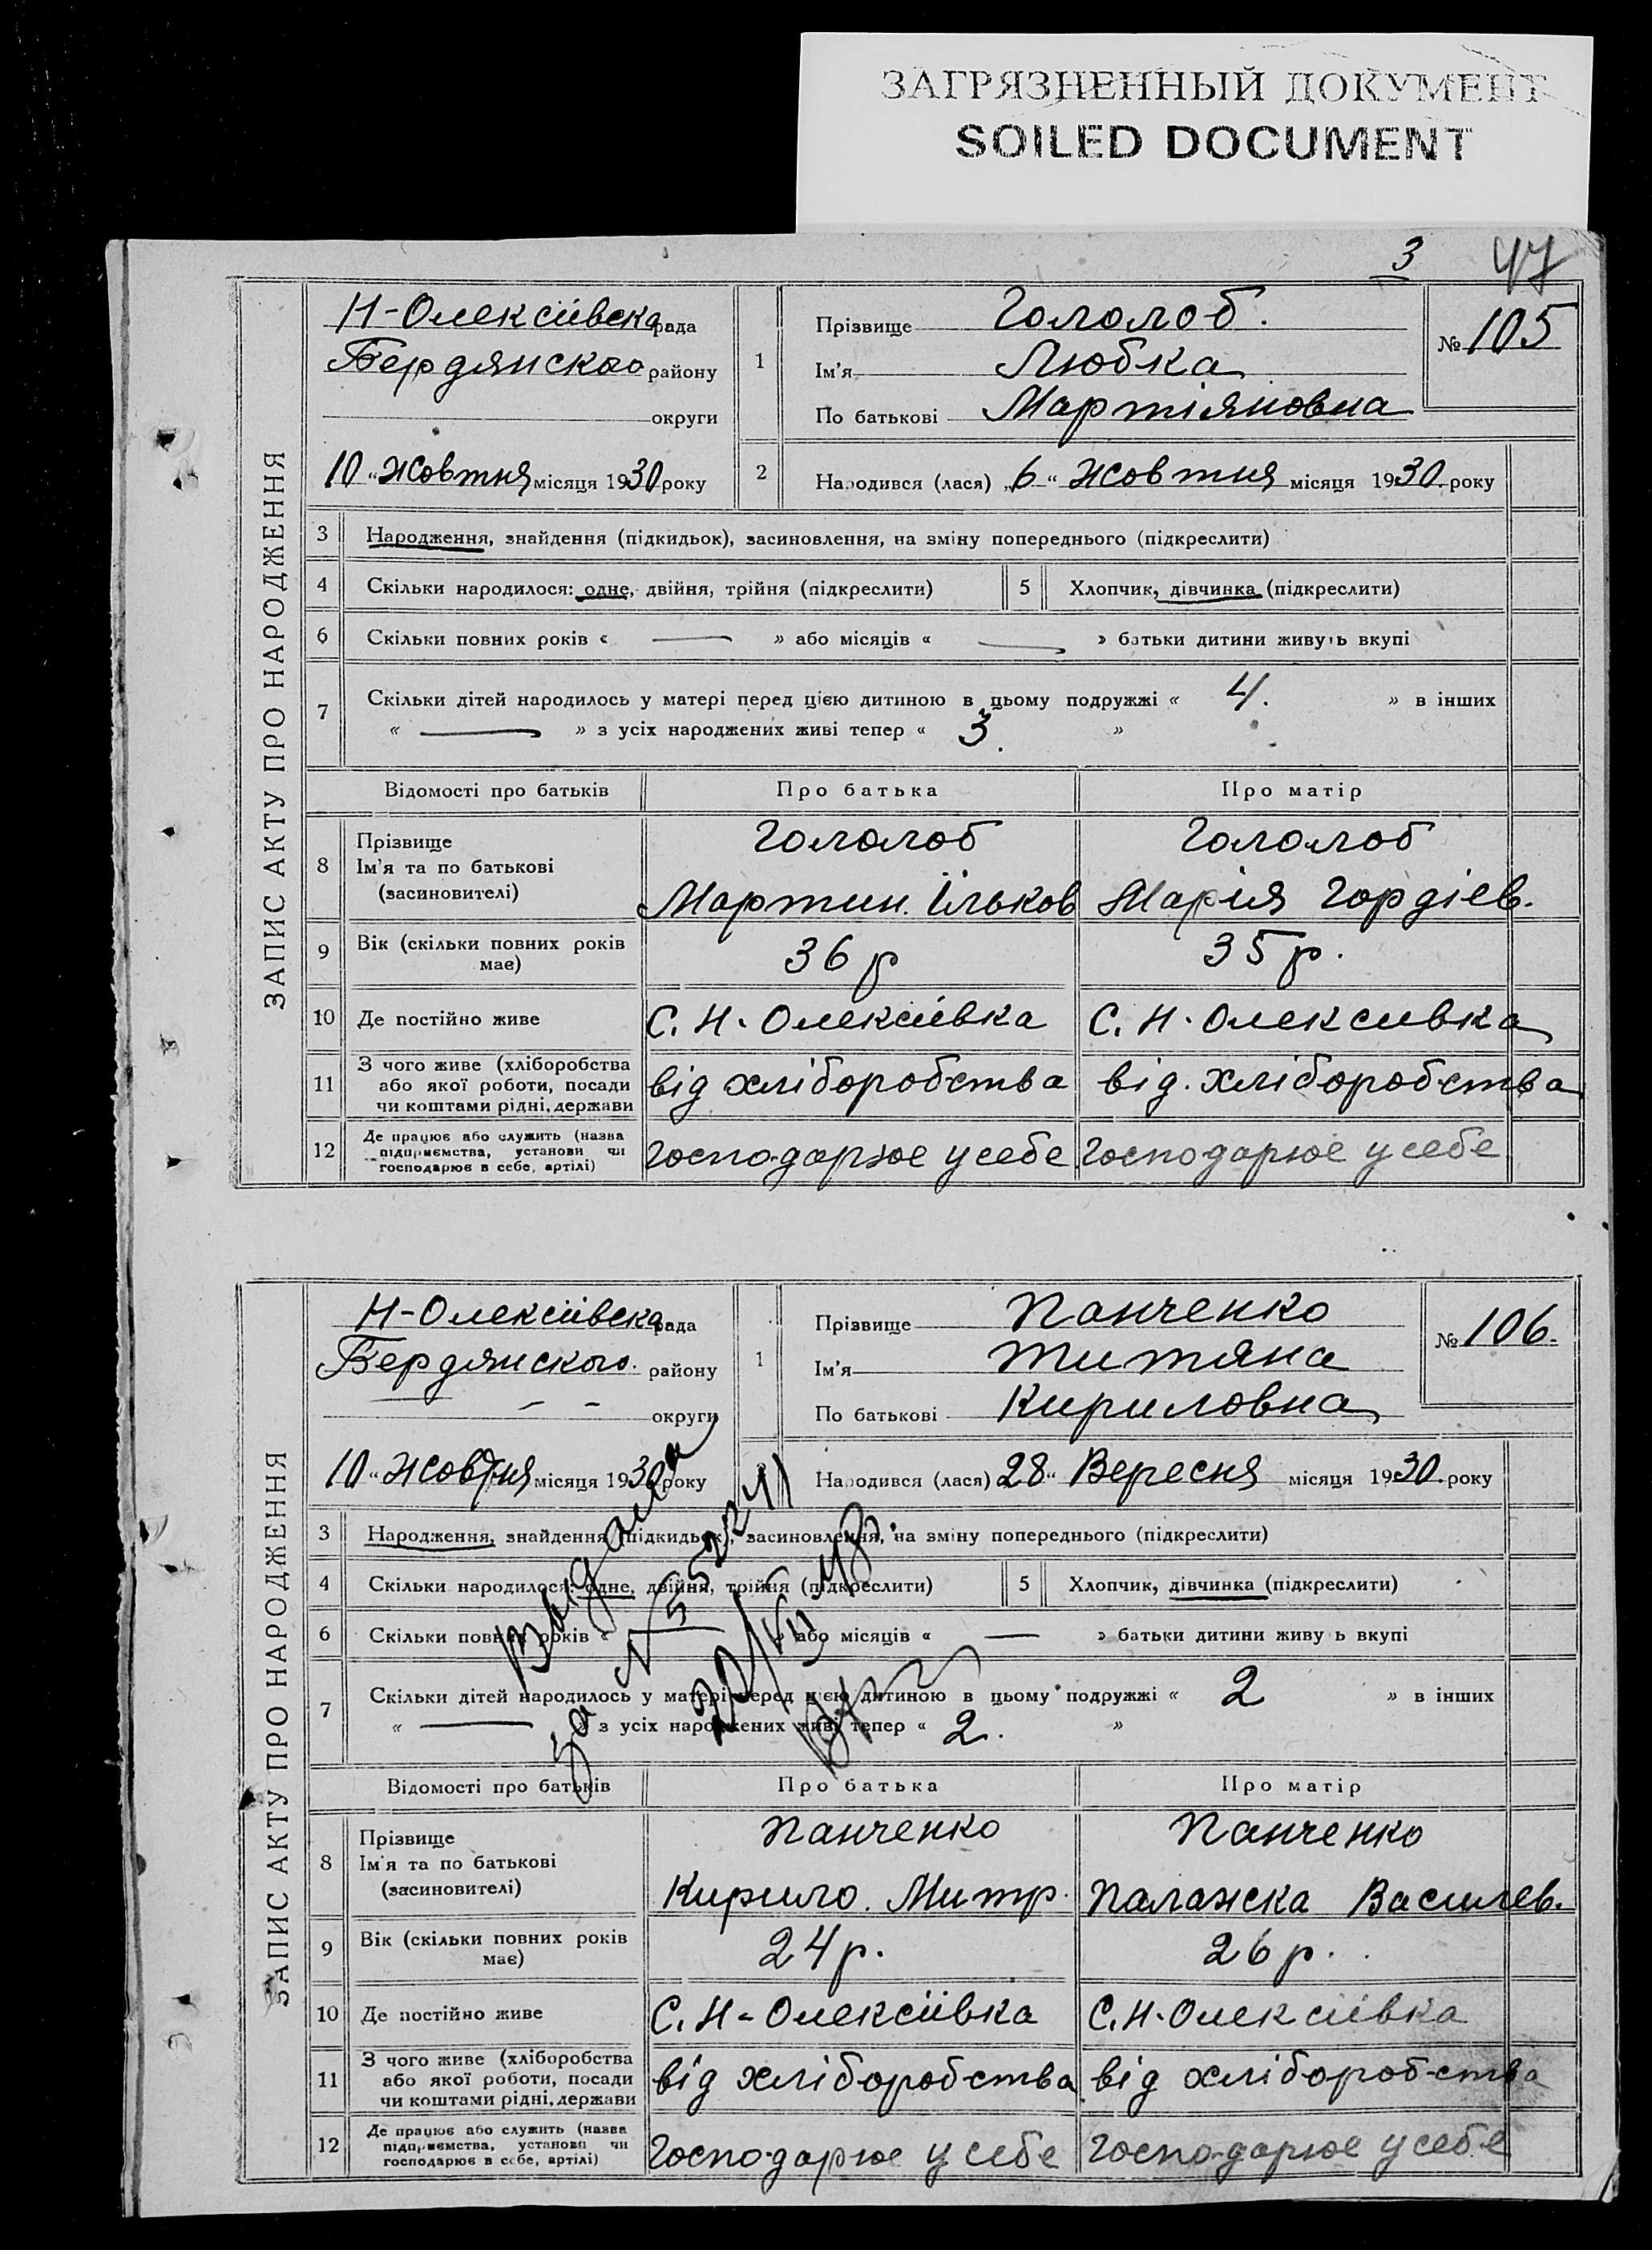 ЗАГРЯЗНЕННЫЙ ДОКУМЕНТ
SOILED DOCUMENT
3 47
ЗАПИС АКТУ ПРО НАРОДЖЕННЯ
Н-Олексіївска рада
Бердянского району
округи
10 " жовтня місяця 1930 року
1
Прізвище Гололоб.
Ім'я Любка
По батькові Мартіяновна
№ 105
2 Народився (лася) „6" жовтня місяця 1930 року
3 Народження, знайдення (підкидьок), засиновлення, на зміну попереднього (підкреслити)
4 Скільки народилося: одне, двійня, трійня (підкреслити) 5 Хлопчик, дівчинка (підкреслити)
6 Скільки повних років « — » або місяців « — » батьки дитини живуть вкупі
7 Скільки дітей народилось у матері перед цією дитиною в цьому подружжі « 4. » в інших
« — » з усіх народжених живі тепер « 3. »
Відомості про батьків Про батька Про матір
8 Прізвище Ім'я та по батькові (засиновителі)
Гололоб Гололоб
Мартин. Ільков Марія Гордієв.
9 Вік (скільки повних років має) 36 р 35 р.
10 Де постійно живе С. Н. Олексіївка С. Н. Олексивка
11 З чого живе (хліборобства або якої роботи, посади чи коштами рідні, держави від хліборобства від. хліборобства
12 Де працює або служить (назва підприємства, установи чи господарює в себе, артілі) Господарює у себе Господарює у себе
ЗАПИС АКТУ ПРО НАРОДЖЕННЯ
Н-Олексіївска рада
Бердянского. району
— — округи
10 " жовтня місяця 1930 року
1
Прізвище Панченко
Ім'я Титяна
По батькові Кириловна
№ 106.
Народився (лася) 28" Вересня місяця 1930 року
3 Народження, знайдення (підкидьок), засиновлення, на зміну попереднього (підкреслити)
4 Скільки народилося: одне, двійня, трійня (підкреслити) 5 Хлопчик, дівчинка (підкреслити)
6 Скільки повних років « — » або місяців « — » батьки дитини живу ь вкупі
7 Скільки дітей народилось у матері перед цією дитиною в цьому подружжі « 2 » в інших
« — » з усіх народжених живі тепер « 2. »
за №
Відомості про батьків Про батька Про матір
8 Прізвище Ім'я та по батькові (засиновителі)
Панченко Панченко
Кирило. Митр. Палажска Василев.
9 Вік (скільки повних років має) 24 р. 26 р.
10 Де постійно живе С. Н-Олексіївка С. Н-Олексіївка
11 З чого живе (хліборобства або якої роботи, посади чи коштами рідні, держави від хліборобства від хліборобства
12 Де працює або служить (назва підприємства, установи чи господарює в себе, артілі) Господарює у себе Господарює у себе